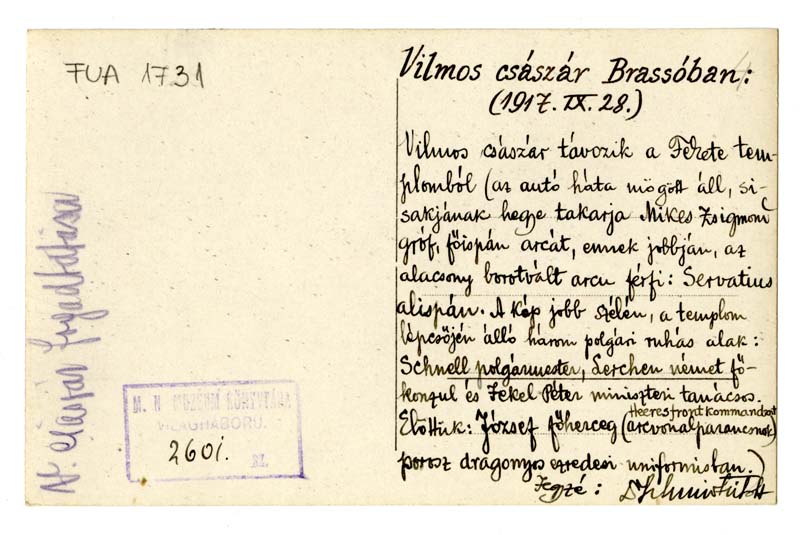 FUA 1731
Vilmos császár Brassóban:
(1917. IX. 28.)
Vilmos császár távozik a Fekete tem-
plomból (az autó háta mögött áll, si-
sakjának hegye takarja Mikes Zsigmond
gróf, főispán arcát, ennek jobbján, az
alacsony borotvált arcu férfi: Servatius
alispán. A kép jobb szélén, a templom
lépcsőjén álló három polgári ruhás alak:
Schnell polgármester, Lerchen német fő-
konzul és Jekel Péter miniszteri tanácsos.
Heeresfrontkommandant
Előttük: József főherceg (arcvonalparancsnok)
porosz dragonyos ezredesi uniformisban.)
Jegzé:
N. Császár fogadtatása
M. N. MÚZEUM KÖNYVTÁRA
VILÁGHÁBORU.
2601. SZ.